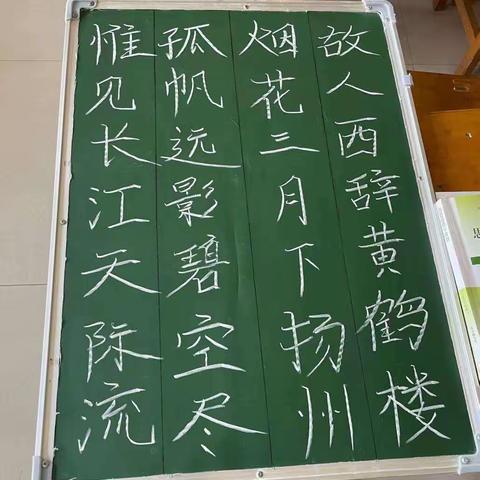 故人西辞黄鹤楼
烟花三月下扬州
孤帆远影碧空尽
惟见长江天际流